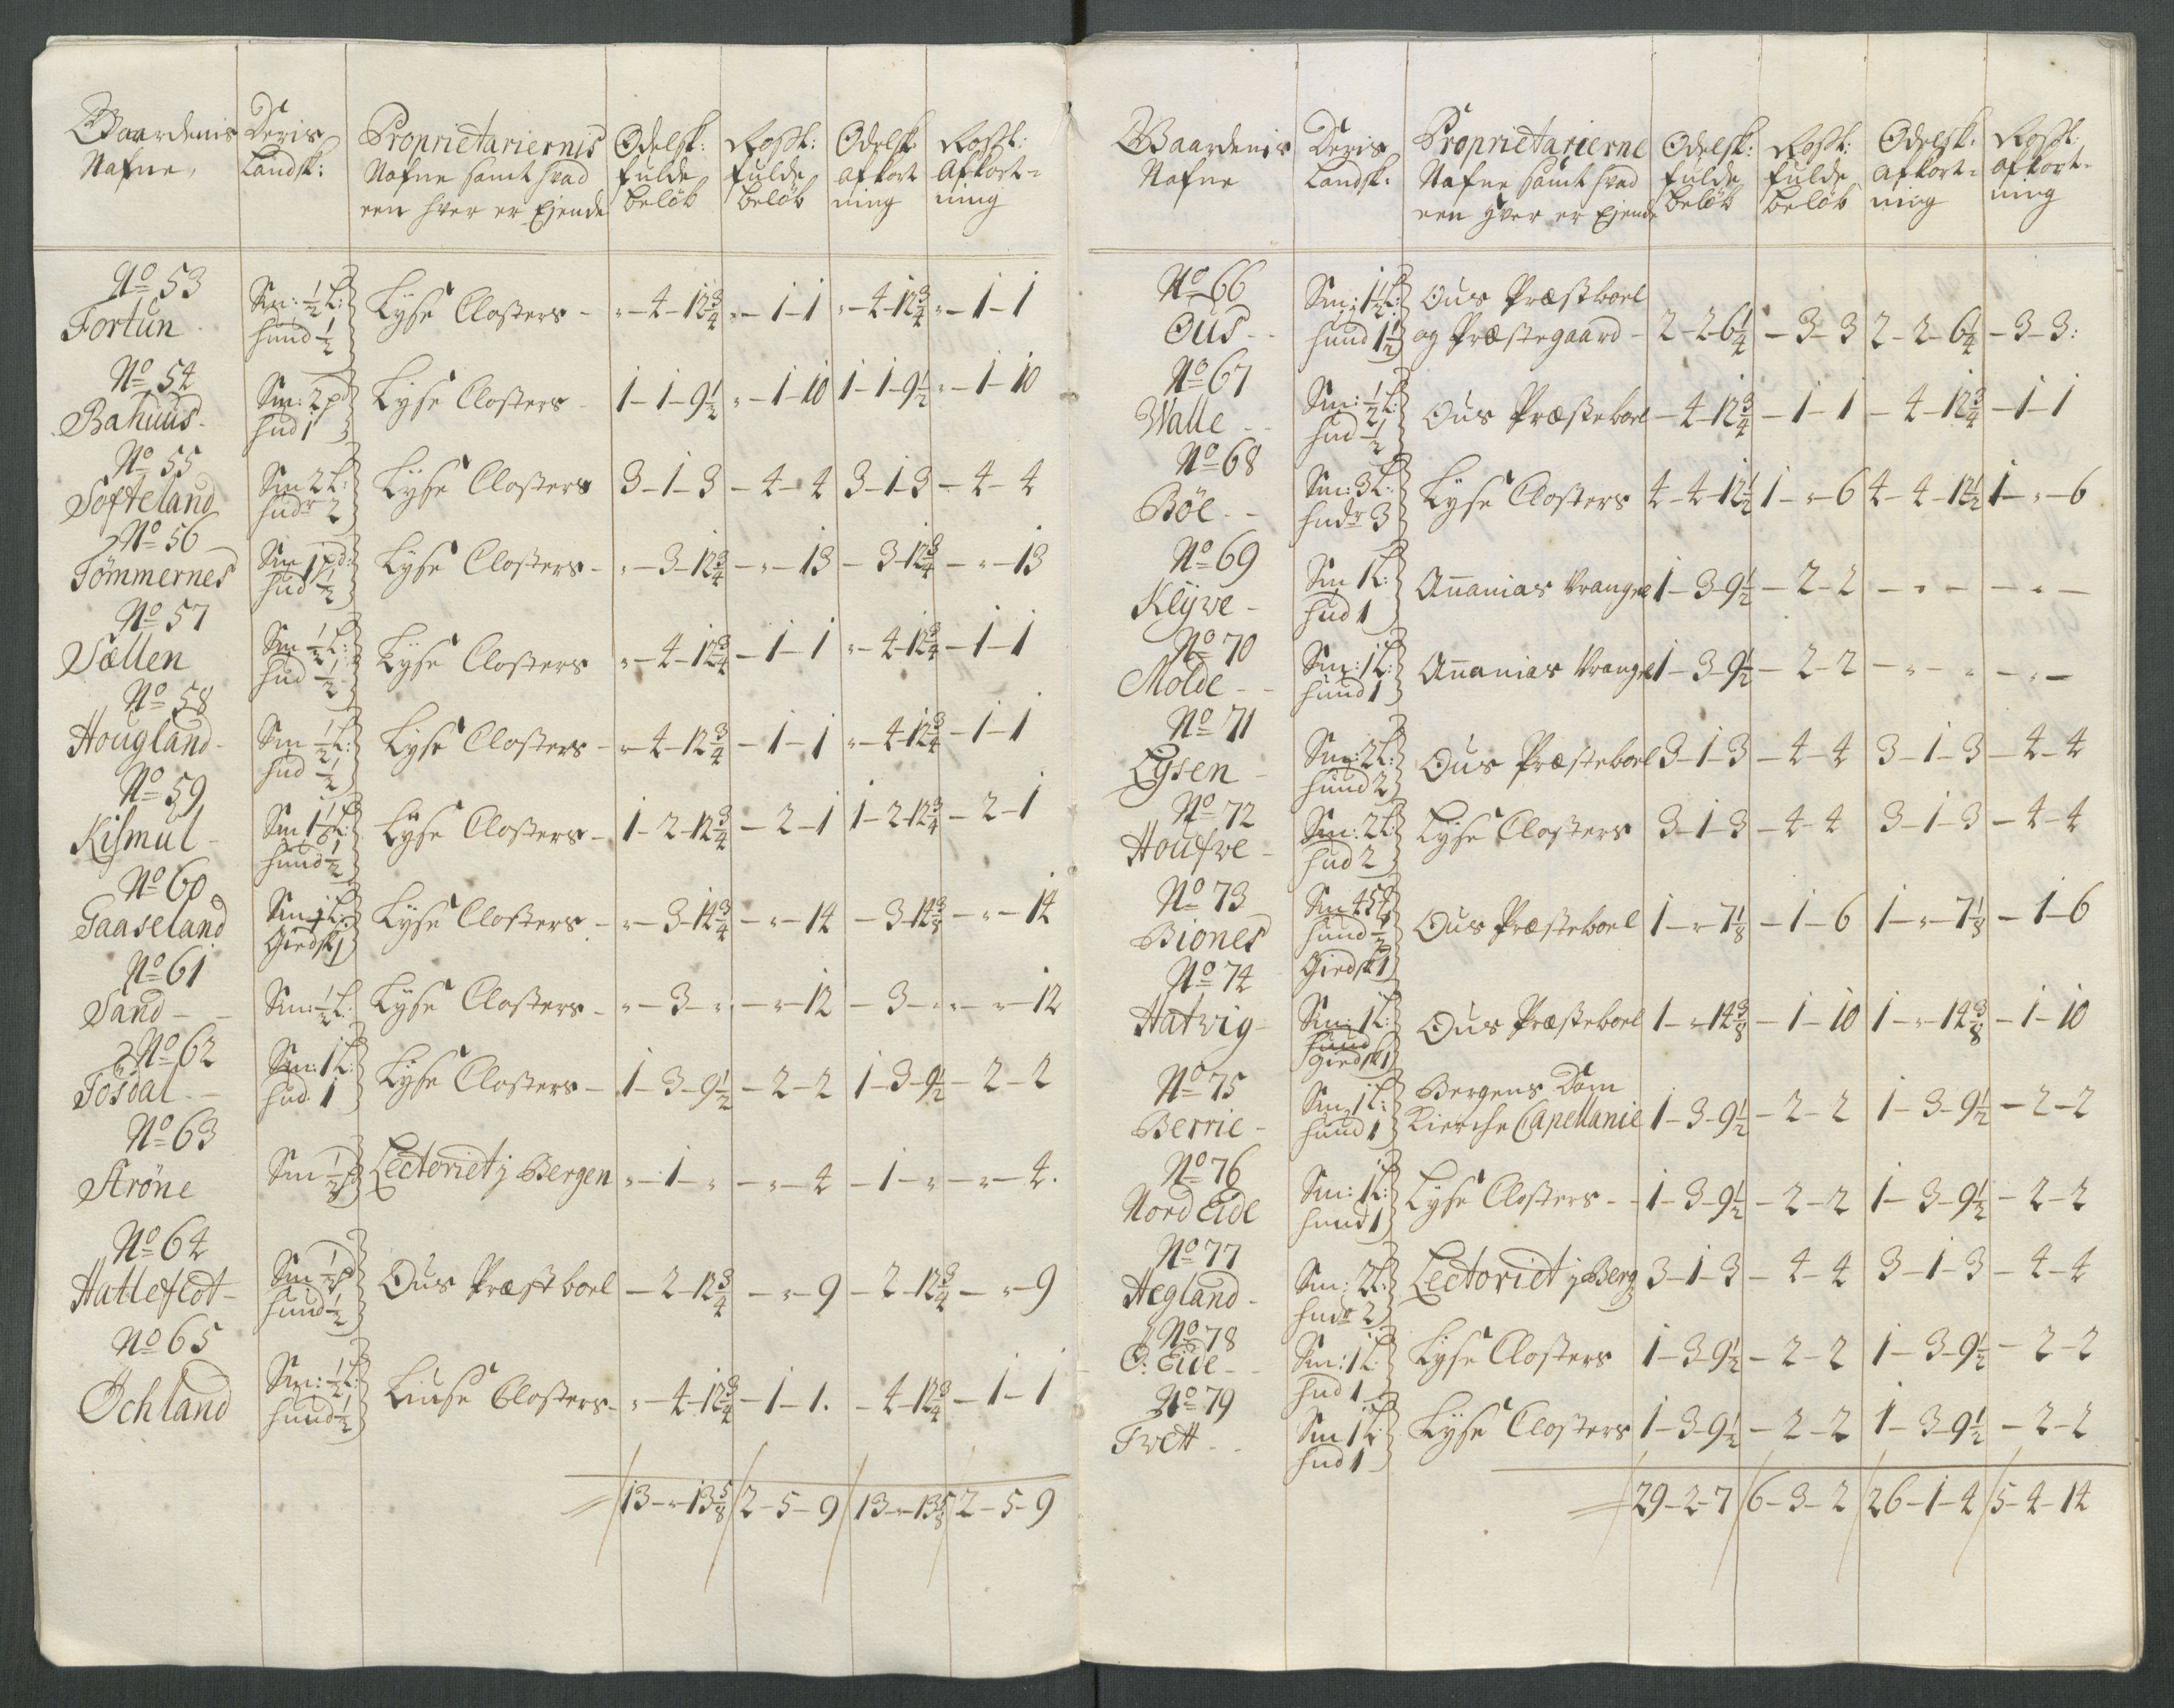 Gaardenis Nafne,
Deris Landsk:
Proprietariernis Nafne samt hvad een hver er Ejende
Odelsk: fulde beløb
Rostt: fulde beløb
Odelsk: afkortning
Rostt: Afkort=ning
No 53 Fortun Sm: ½ L: hund ½ Lyse Closters - „-4-12¾ „-1-1 „-4-12¾ „-1-1
No 54 Bahuus Sm: 2 pd hud 1 Lyse Closters 1-1-9½ „-1-10 1-1-9½ „-1-10
No 55 Softeland Sm 2 L: hudr 2 Lyse Closters 3-1-3 -4-4 3-1-3 -4-4
No 56 Tömmernes Sm 1 pd: hud ½ Lyse Closters - „-3-12¾ -„-13 -3-12¾ -„-13
No 57 Sællen Sm ½ L: hud ½ Lyse Closters „-4-12¾ -1-1 „-4-12¾ -1-1
No 58 Hougland Sm ½ L: hud ½ Lyse Closters - „-4-12¾ -1-1 „-4-12¾ -1-1
No 59 Kismul Sm 1½ L: hund ½ Lyse Closters - 1-2-12¾ -2-1 1-2-12¾ -2-1
No 60 Gaaseland Sm 1 L: Giedsk 1 Lyse Closters - „-3-14¾ -„-14 -3-14¾ -„-14
No 61 Sand - - Sm: ½ L: Lyse Closters - „-3-„ -„-12 -3-„ -„-12
No 62 Tösdal - Sm: 1 L: hud 1 Lyse Closters - 1-3-9½ -2-2 1-3-9½ -2-2
No 63 Ströne Sm ½ Lectoriet j Bergen „-1-„ -„-4 -1-„ -„-4.
No 64 Hatleflot Sm ½ pd hund ½ Ous Præstboel -2-12¾ -„-9 -2-12¾ -„-9
No 65 Öchland Sm: ½ L: hund ½ Liuse Closters - „-4-12¾ -1-1. -4-12¾ -1-1
13-„-13⅝ 2-5-9 13-„-13⅝ 2-5-9
Gaardenis Nafne
Deris Landsk:
Proprietarierne Nafne samt hvad een hver er Ejende
Odelsk: fulde beløb
Rostt: fulde beløb
Odelsk: afkort=ning
Rostt: afkort=ning
No 66 Ous - - Sm: 1½ L: hund 1½ Ous Præstboel og Præstegaard - 2-2-6¼ -3-3 2-2-6¼ -3-3:
No 67 Walle - - Sm: ½ L: hud ½ Ous Præsteboel -4-12¾ -1-1 -4-12¾ -1-1
No 68 Böe - - Sm: 3 L: hudr 3 Lyse Closters 4-4-12½ 1-„-6 4-4-12½ 1-„-6
No 69 Klyve - Sm 1 L: hud 1 Ananias Vrangel 1-3-9½ -2-2 -„- -„-
No 70 Molde - - Sm: 1 L: hund 1 Ananias Vrangel 1-3-9½ -2-2 -„-„ -„-
No 71 Lysen - Sm: 2 L: hund 2 Ous Præsteboel 3-1-3 -4-4 3-1-3 -4-4
No 72 Houfve - Sm: 2 L: hud 2 Lyse Closters 3-1-3 -4-4 3-1-3 -4-4
No 73 Biones Sm 45 hund ½ Giedsk 1 Ous Præsteboel 1-„-7⅛ -1-6 1-„-7⅛ -1-6
No 74 Hatvig Sm: 1 L: hund Giedsk 1 Ous Præsteboel 1-„-14⅜ -1-10 1-„-14⅜ -1-10
No 75 Berrie - Sm 1 L: hund 1 Bergens Dom Kierche Capellanie 1-3-9½ -2-2 1-3-9½ -2-2
No 76 Nord Eide Sm: 1 L: hund 1 Lyse Closters - - 1-3-9½ -2-2 1-3-9½ -2-2
No 77 Hegland - Sm: 2 L: hudr 2 Lectoriet j Berg 3-1-3 -4-4 3-1-3 -4-4
No 78 O: Eide - - Sm: 1 L: hud 1 Lyse Closters 1-3-9½ -2-2 1-3-9½ -2-2
No 79 Tvett - - Sm 1 L: hud 1 Lyse Closters 1-3-9½ -2-2 1-3-9½ -2-2
29-2-7 6-3-2 26-1-4 5-4-14